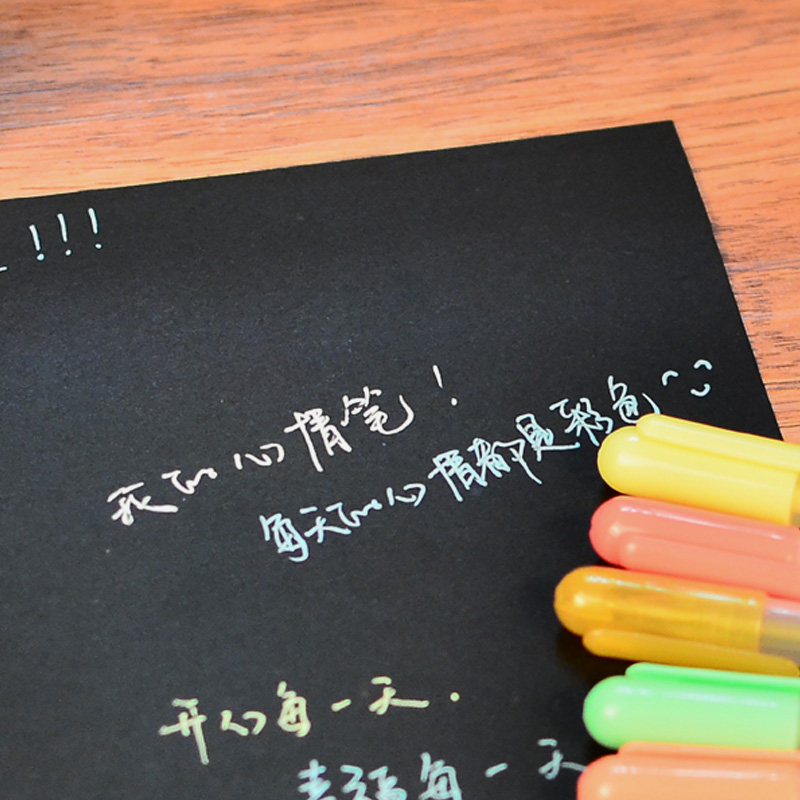 !!!
我的心情笔!
每天的心情都是彩色^^
开心每一天.
幸福每一天